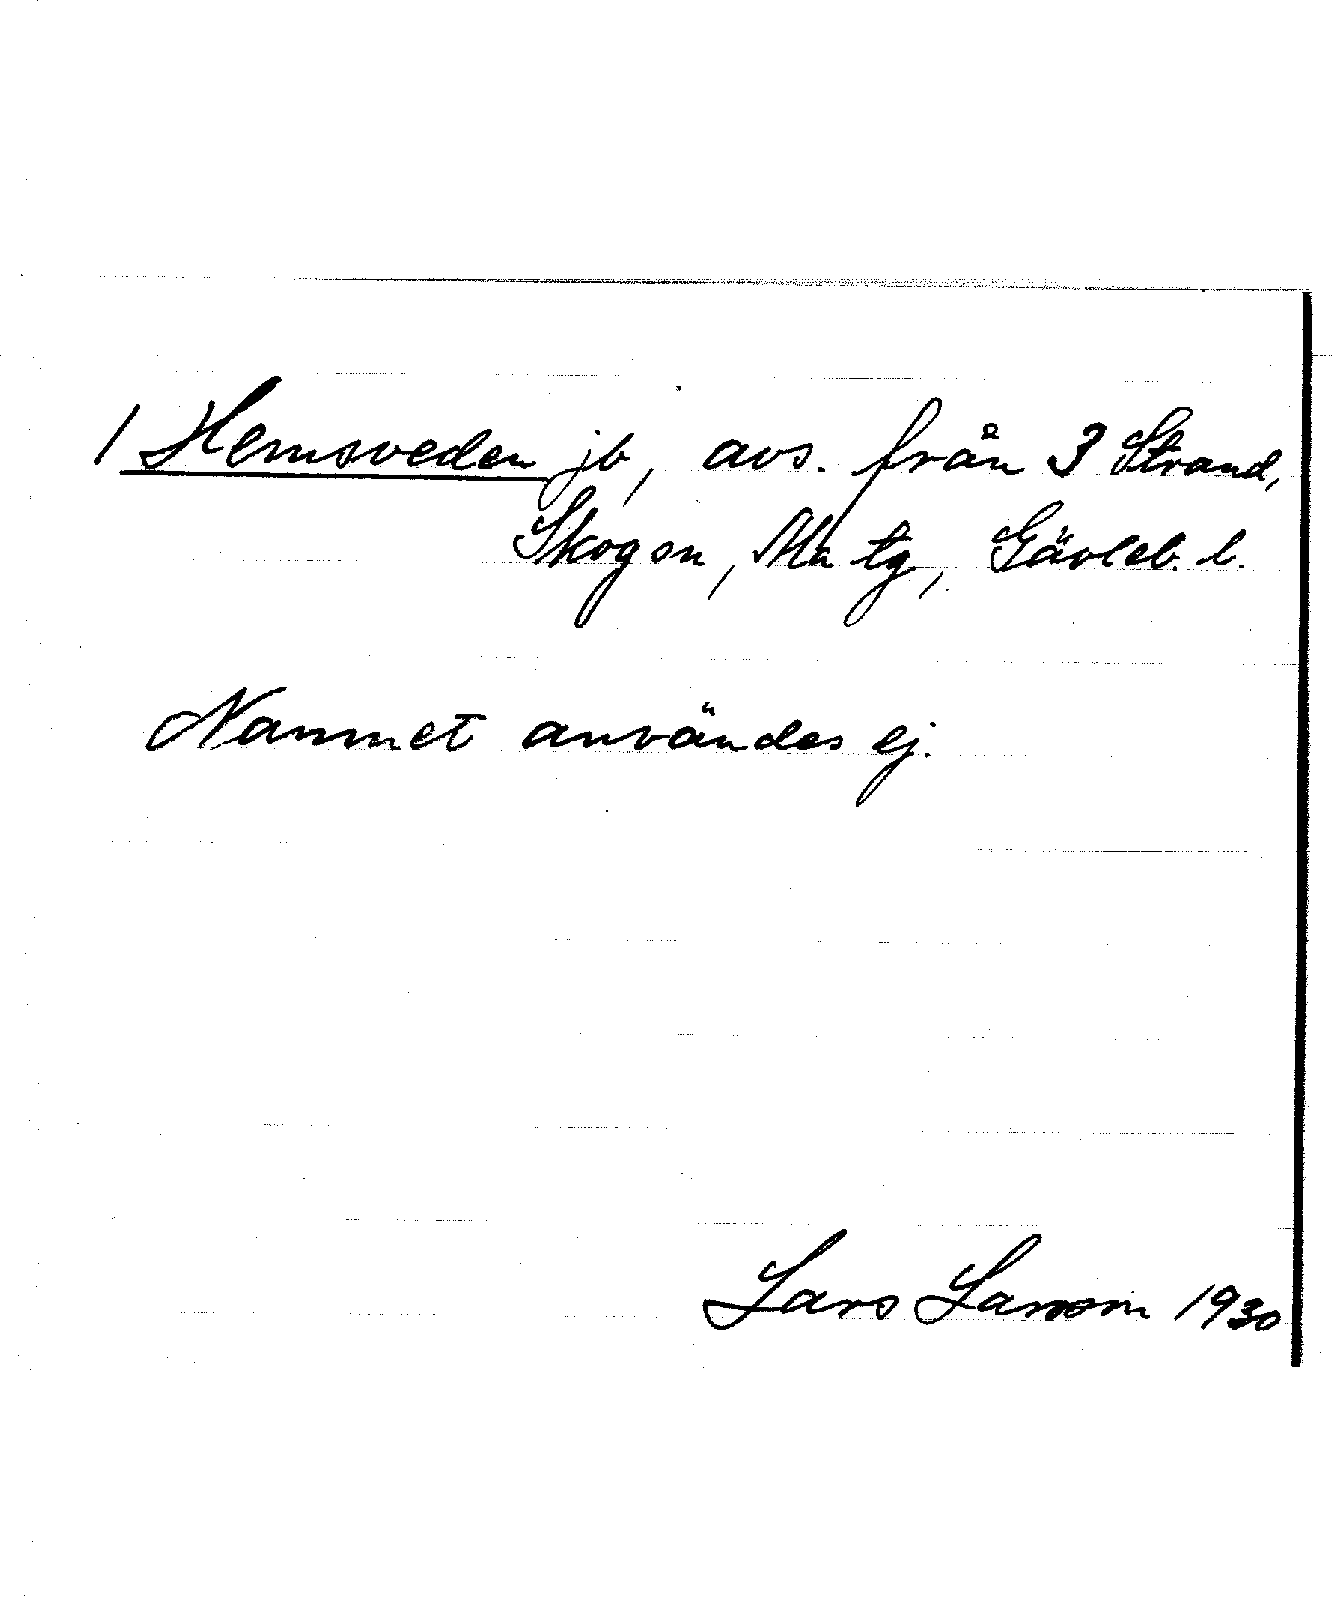 1 Hemsveden jb, avs. från 3 Strand,
Skogsn, Ala tg, Gävleb. l.
Namnet användes ej.
Lars Larsson 1930